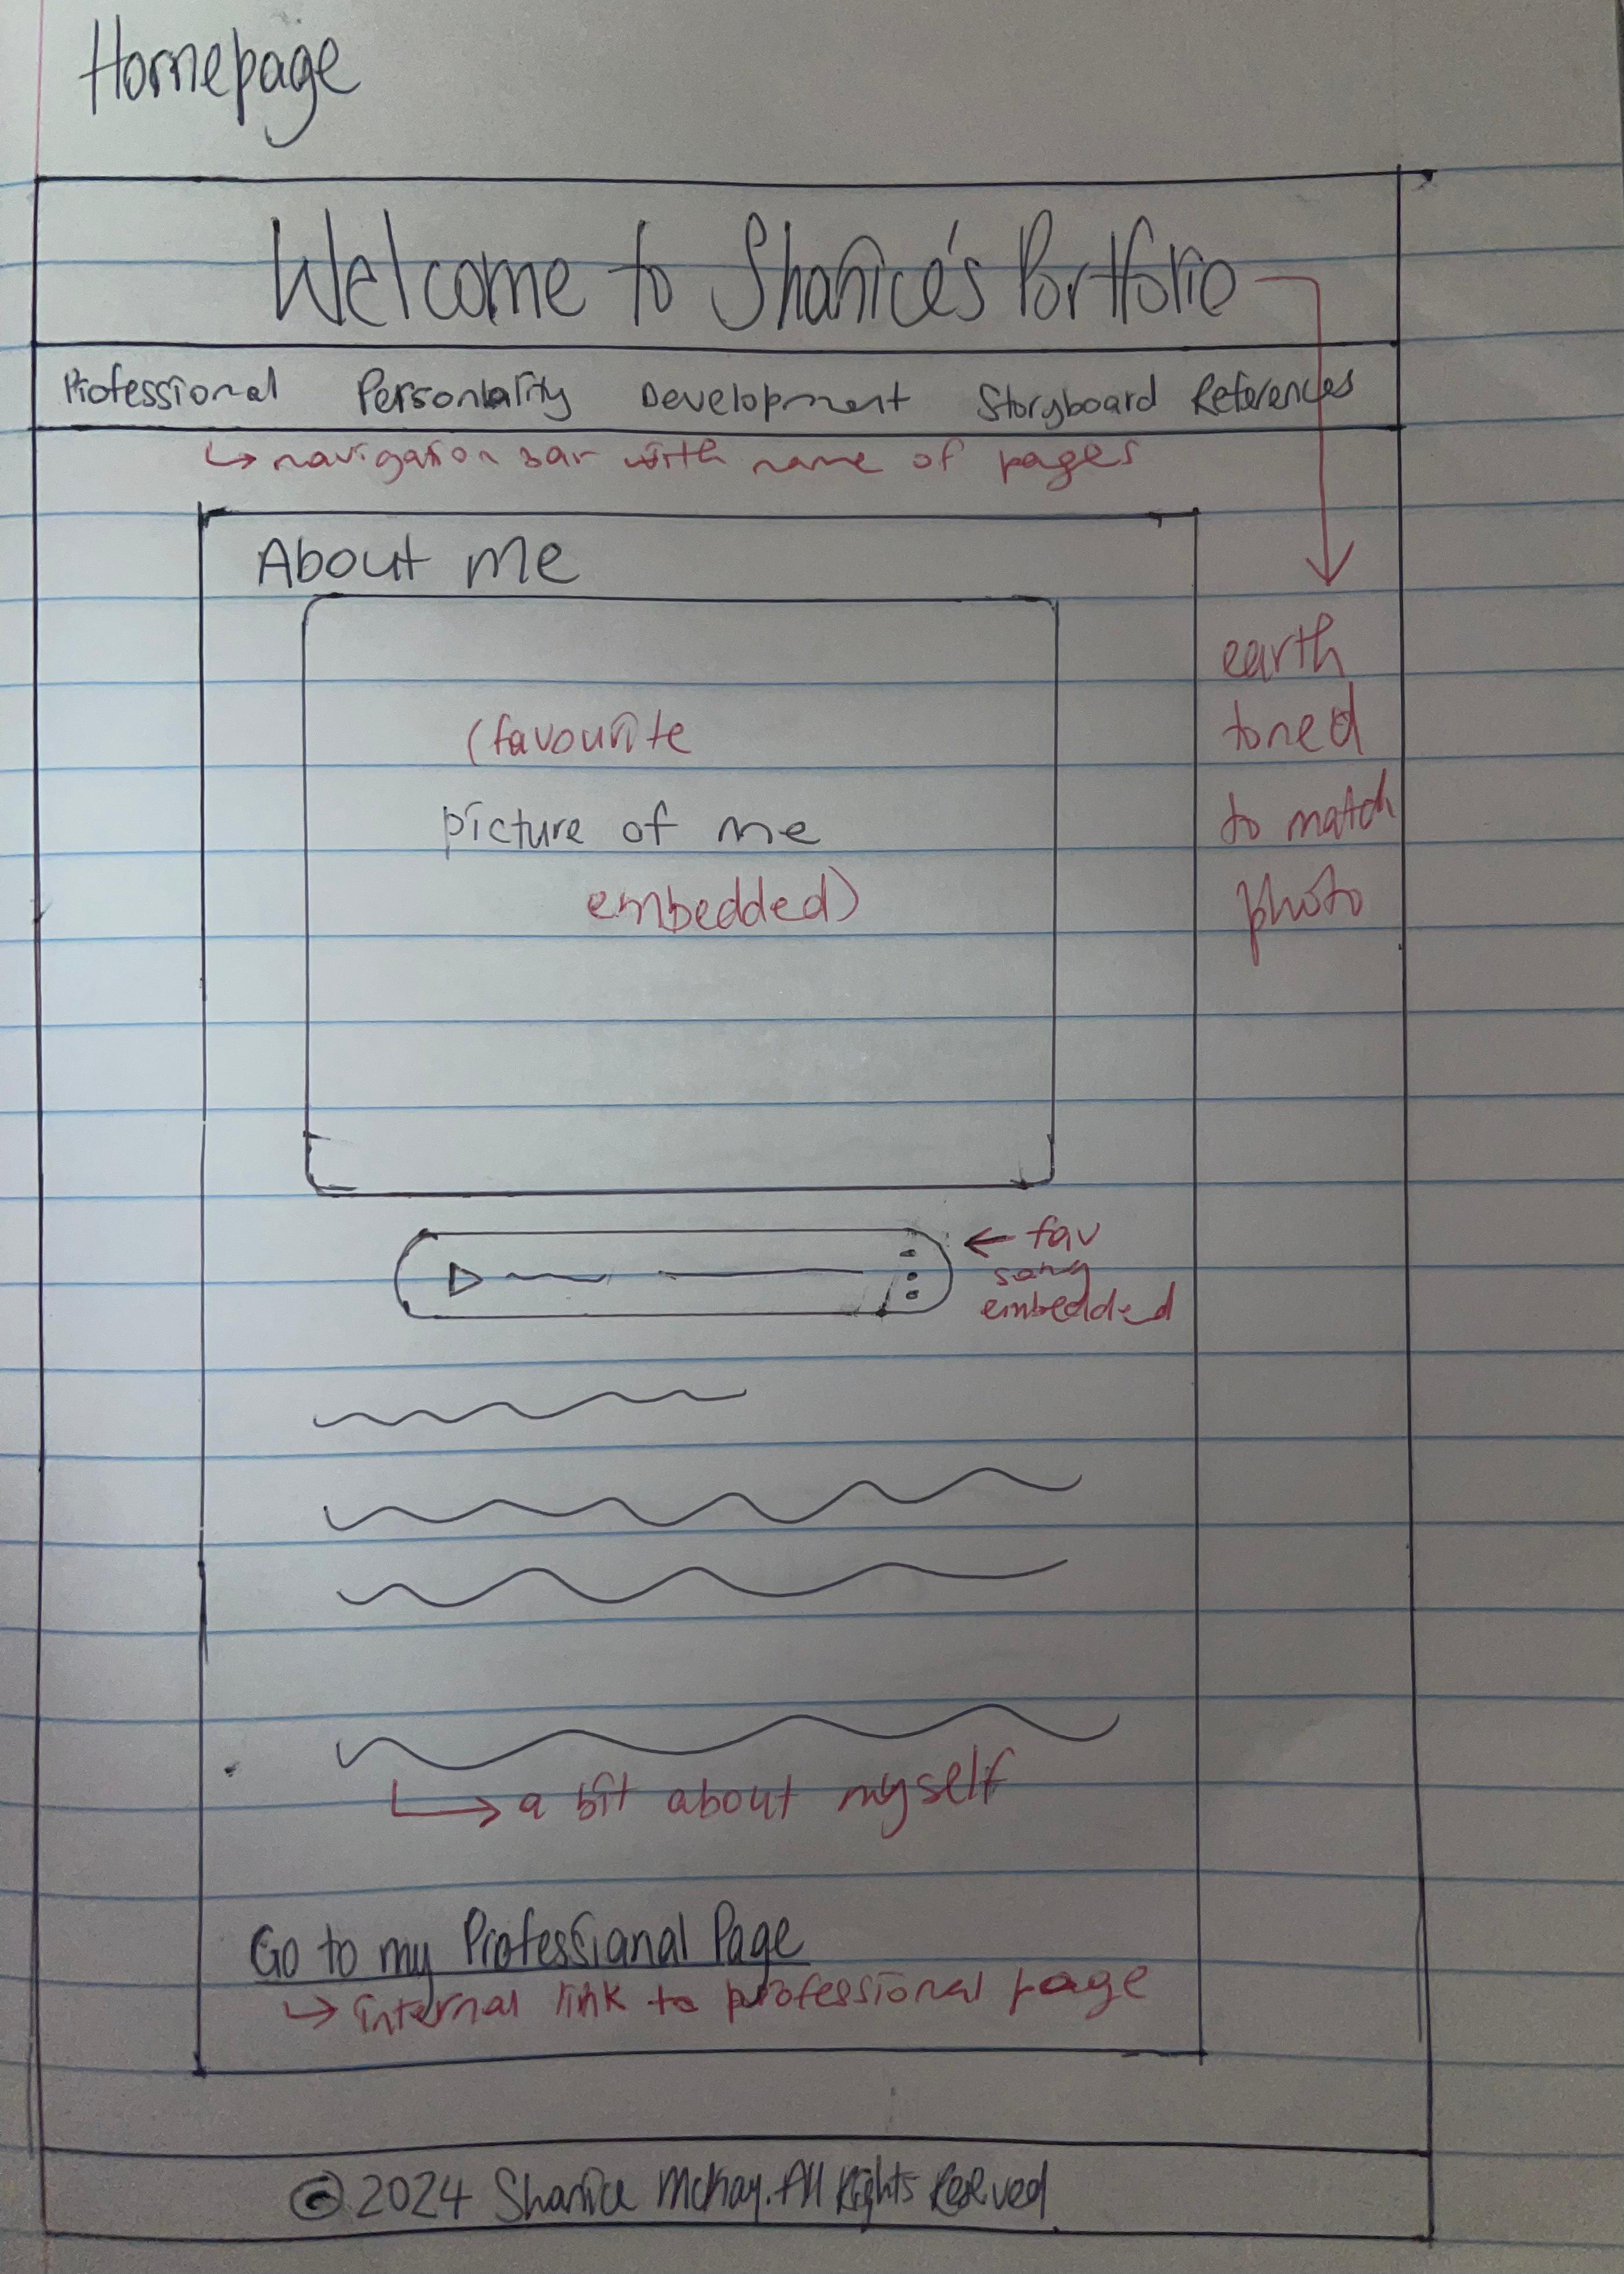 Homepage
Welcome to Shanice's Portfolio
Professional Personality Development Storyboard References
↳ navigation bar with name of pages
About me
(favourite
picture of me
embedded)
earth
toned
to match
photo
← fav
song
embedded
↳ a bit about myself
Go to my Professional Page
↳ internal link to professional page
© 2024 Shanice McKay. All Rights Reserved